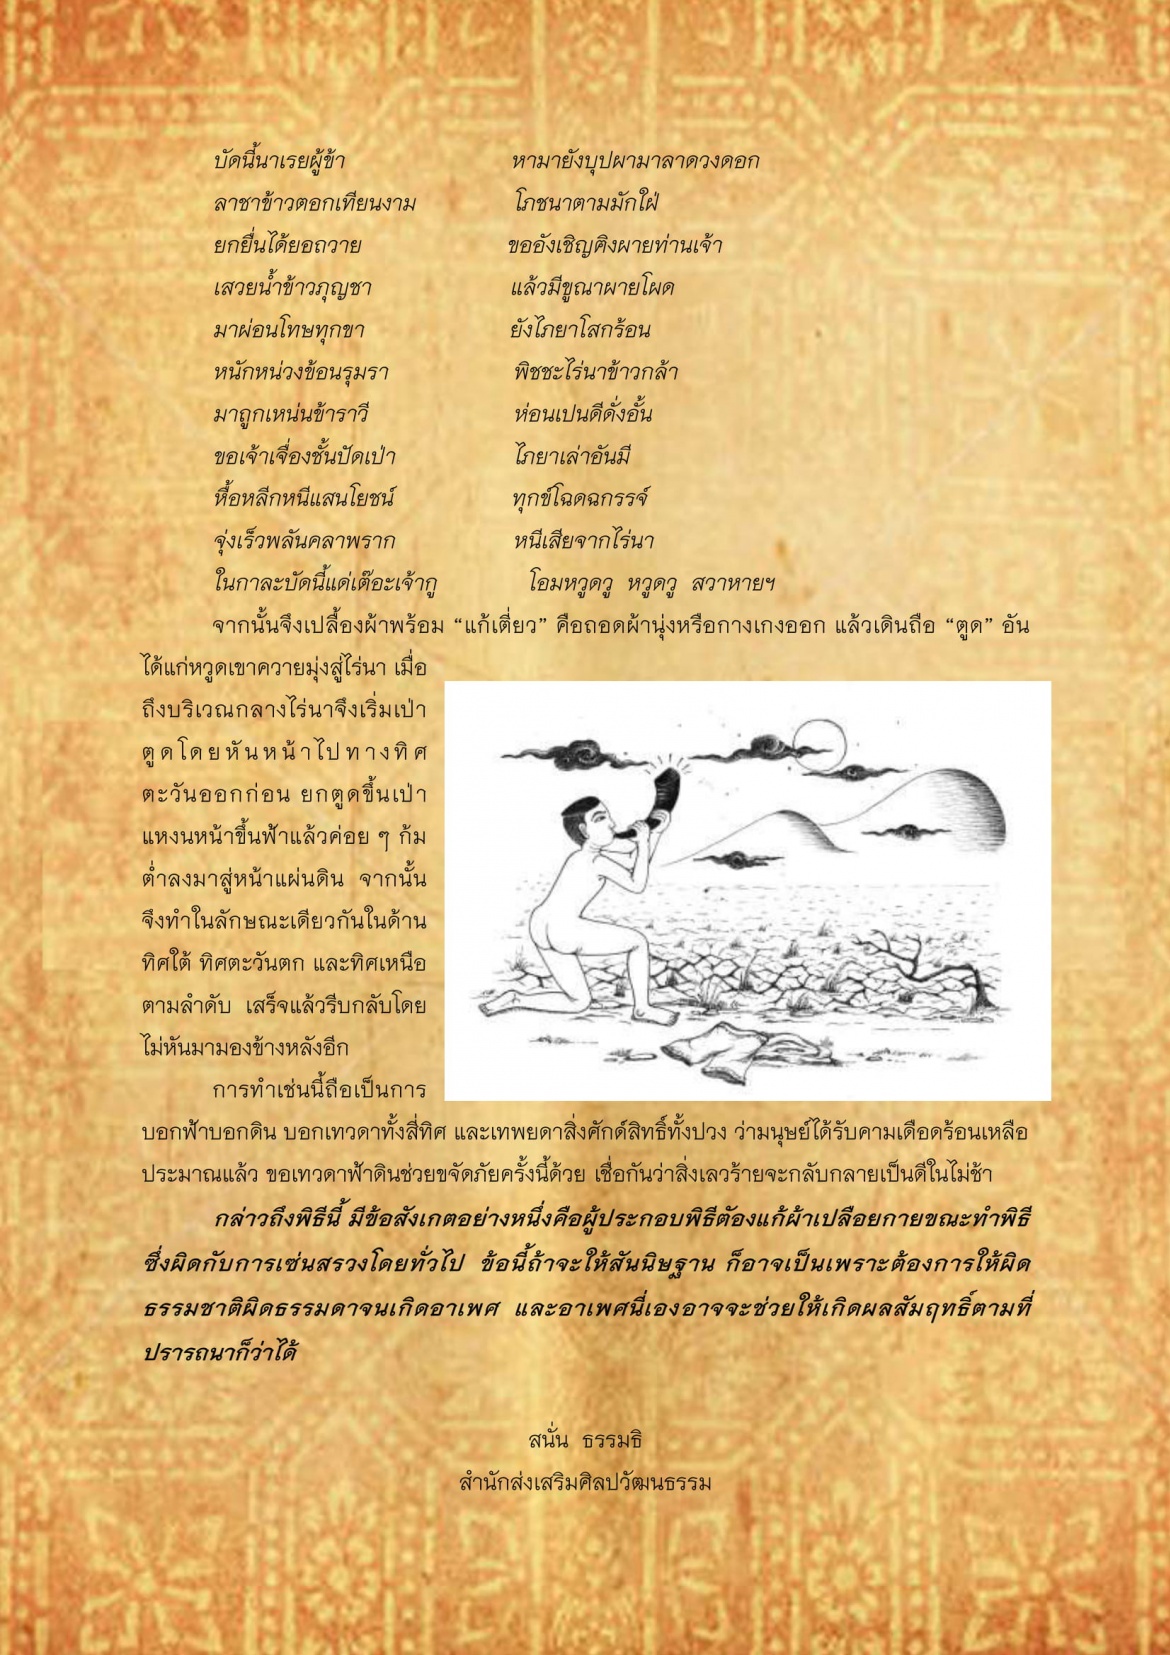 บัดนี้นาเรยผู้ข้า หามายังบุปผามาลาดวงดอก
ลาชาข้าวตอกเทียนงาม โภชนาตามมักใฝ่
ยกยื่นได้ยอถวาย ขออังเชิญคิงผายท่านเจ้า
เสวยน้ำข้าวภุญชา แล้วมีขูณาผายโผด
มาผ่อนโทษทุกขา ยังไภยาโสกร้อน
หนักหน่วงข้อนรุมรา พิชชะไร่นาข้าวกล้า
มาถูกเหน่นข้าราวี ห่อนเปนดีดั่งอั้น
ขอเจ้าเจื่องชั้นปัดเป่า ไภยาเล่าอันมี
หื้อหลีกหนีแสนโยชน์ ทุกข์โฉดฉกรรจ์
จุ่งเร็วพลันคลาพราก หนีเสียจากไร่นา
ในกาละบัดนี้แด่เต๊อะเจ้ากู โอมหวูดวู หวูดวู สวาหายฯ
จากนั้นจึงเปลื้องผ้าพร้อม “แก้เตี่ยว” คือถอดผ้านุ่งหรือกางเกงออก แล้วเดินถือ “ตูด” อัน
ได้แก่หวูดเขาควายมุ่งสู่ไร่นา เมื่อ
ถึงบริเวณกลางไร่นาจึงเริ่มเป่า
ตูดโดยหันหน้าไปทางทิศ
ตะวันออกก่อน ยกตูดขึ้นเป่า
แหงนหน้าขึ้นฟ้าแล้วค่อย ๆ ก้ม
ต่ำลงมาสู่หน้าแผ่นดิน จากนั้น
จึงทำในลักษณะเดียวกันในด้าน
ทิศใต้ ทิศตะวันตก และทิศเหนือ
ตามลำดับ เสร็จแล้วรีบกลับโดย
ไม่หันมามองข้างหลังอีก
การทำเช่นนี้ถือเป็นการ
บอกฟ้าบอกดิน บอกเทวดาทั้งสี่ทิศ และเทพยดาสิ่งศักดิ์สิทธิ์ทั้งปวง ว่ามนุษย์ได้รับคามเดือดร้อนเหลือ
ประมาณแล้ว ขอเทวดาฟ้าดินช่วยขจัดภัยครั้งนี้ด้วย เชื่อกันว่าสิ่งเลวร้ายจะกลับกลายเป็นดีในไม่ช้า
กล่าวถึงพิธีนี้ มีข้อสังเกตอย่างหนึ่งคือผู้ประกอบพิธีต้องแก้ผ้าเปลือยกายขณะทำพิธี
ซึ่งผิดกับการเซ่นสรวงโดยทั่วไป ข้อนี้ถ้าจะให้สันนิษฐาน ก็อาจเป็นเพราะต้องการให้ผิด
ธรรมชาติผิดธรรมดาจนเกิดอาเพศ และอาเพศนี่เองอาจจะช่วยให้เกิดผลสัมฤทธิ์ตามที่
ปรารถนาก็ว่าได้
สนั่น ธรรมธิ
สำนักส่งเสริมศิลปวัฒนธรรม